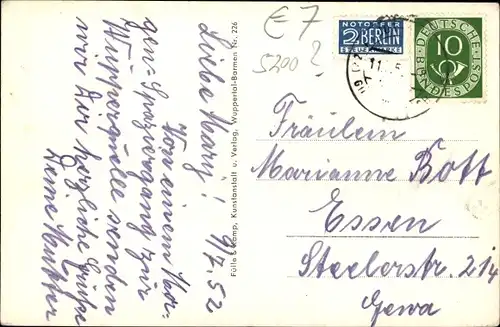 € 7
5200 ?
NOTOPFER
2 BERLIN
STEUERMARKE
DEUTSCHE
BUNDESPOST
10
Liebe Mary! 9/7.52
Von einem Mor-
gen-Spaziergang zur
Wupperquelle senden
wir Dir herzliche Grüße
Deine Mutter
Fülle & Kamp, Kunstanstalt u. Verlag, Wuppertal-Barmen Nr. 226
Fräulein
Marianne Bott
Essen
Steelerstr. 214
Gewa